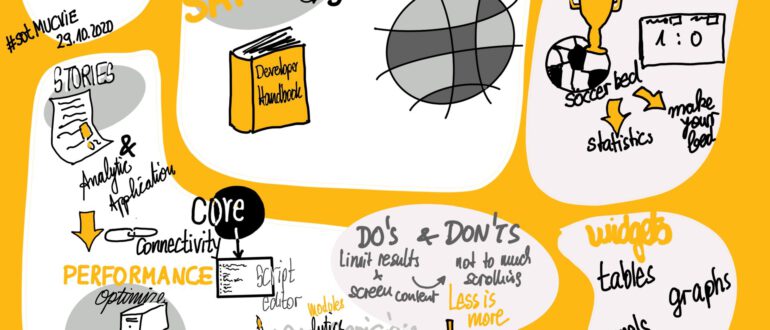 #sotMUCViE
29.10.2020
STORIES
&
Analytic
Application
Connectivity
PERFORMANCE
Optimize
Developer
Handbook
Core
Script
editor
modules
DO'S & DON'TS
Limit results
&
screen content
not to much
scrolling
Less is
more
1:0
soccer bed
statistics
make
your
bed
widgets
tables
graphs